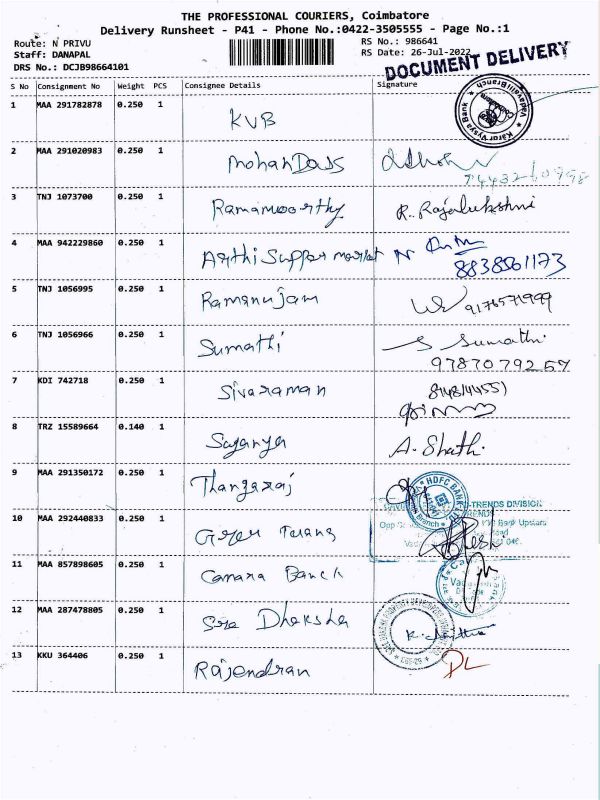 THE PROFESSIONAL COURIERS, Coimbatore
Delivery Runsheet - P41 - Phone No.:0422-3505555 - Page No.:1
Route: N PRIVU
Staff: DANAPAL
DRS No.: DCJB98664101
RS No.: 986641
RS Date: 26-Jul-2022
DOCUMENT DELIVERY
S No Consignment No Weight PCS Consignee Details Signature
1 MAA 291782878 0.250 1 KVB
Karur Vysya Bank
Vadavalli Branch
2 MAA 291020983 0.250 1 Mohan Dass
3 TNJ 1073700 0.250 1 Ramamoorthy R. Rajalukshmi
4 MAA 942229860 0.250 1 Arthi Supper market
8838561173
5 TNJ 1056995 0.250 1 Ramanujam 9176571999
6 TNJ 1056966 0.250 1 Sumathi S Sumathi
9787079257
7 KDI 742718 0.250 1 Sivaraman
8 TRZ 15589664 0.140 1 Saganya A. Shathi
9 MAA 291350172 0.250 1 Thangaraj
HDFC BANK
TRENDS DIVISION
10 MAA 292440833 0.250 1
11 MAA 857898605 0.250 1 Canara Banck
12 MAA 287478805 0.250 1 Sree Dheksha
13 KKU 364406 0.250 1 Rajendran